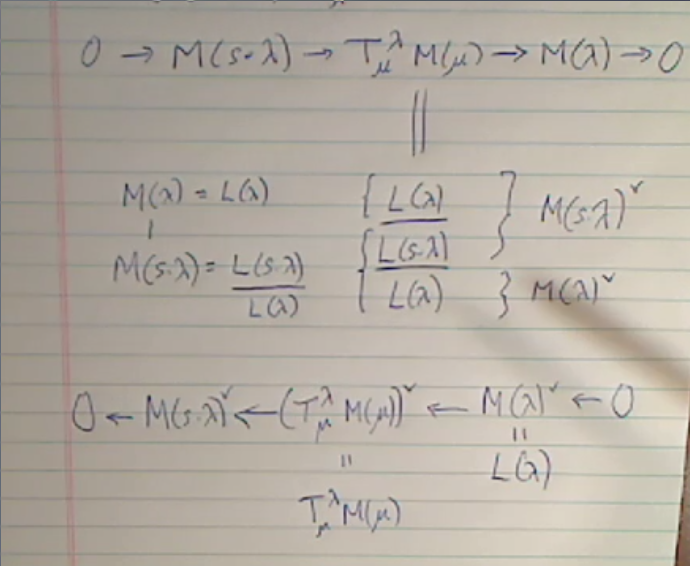 0 → M(s·λ) → T_μ^λ M(μ) → M(λ) → 0
||
M(λ) = L(λ) { L(λ) } M(s·λ)^∨
M(s·λ) = L(s·λ) { L(s·λ)
L(λ) L(λ) } M(λ)^∨
0 ← M(s·λ)^∨ ← (T_μ^λ M(μ))^∨ ← M(λ)^∨ ← 0
|| ||
L(λ)
T_μ^λ M(μ)